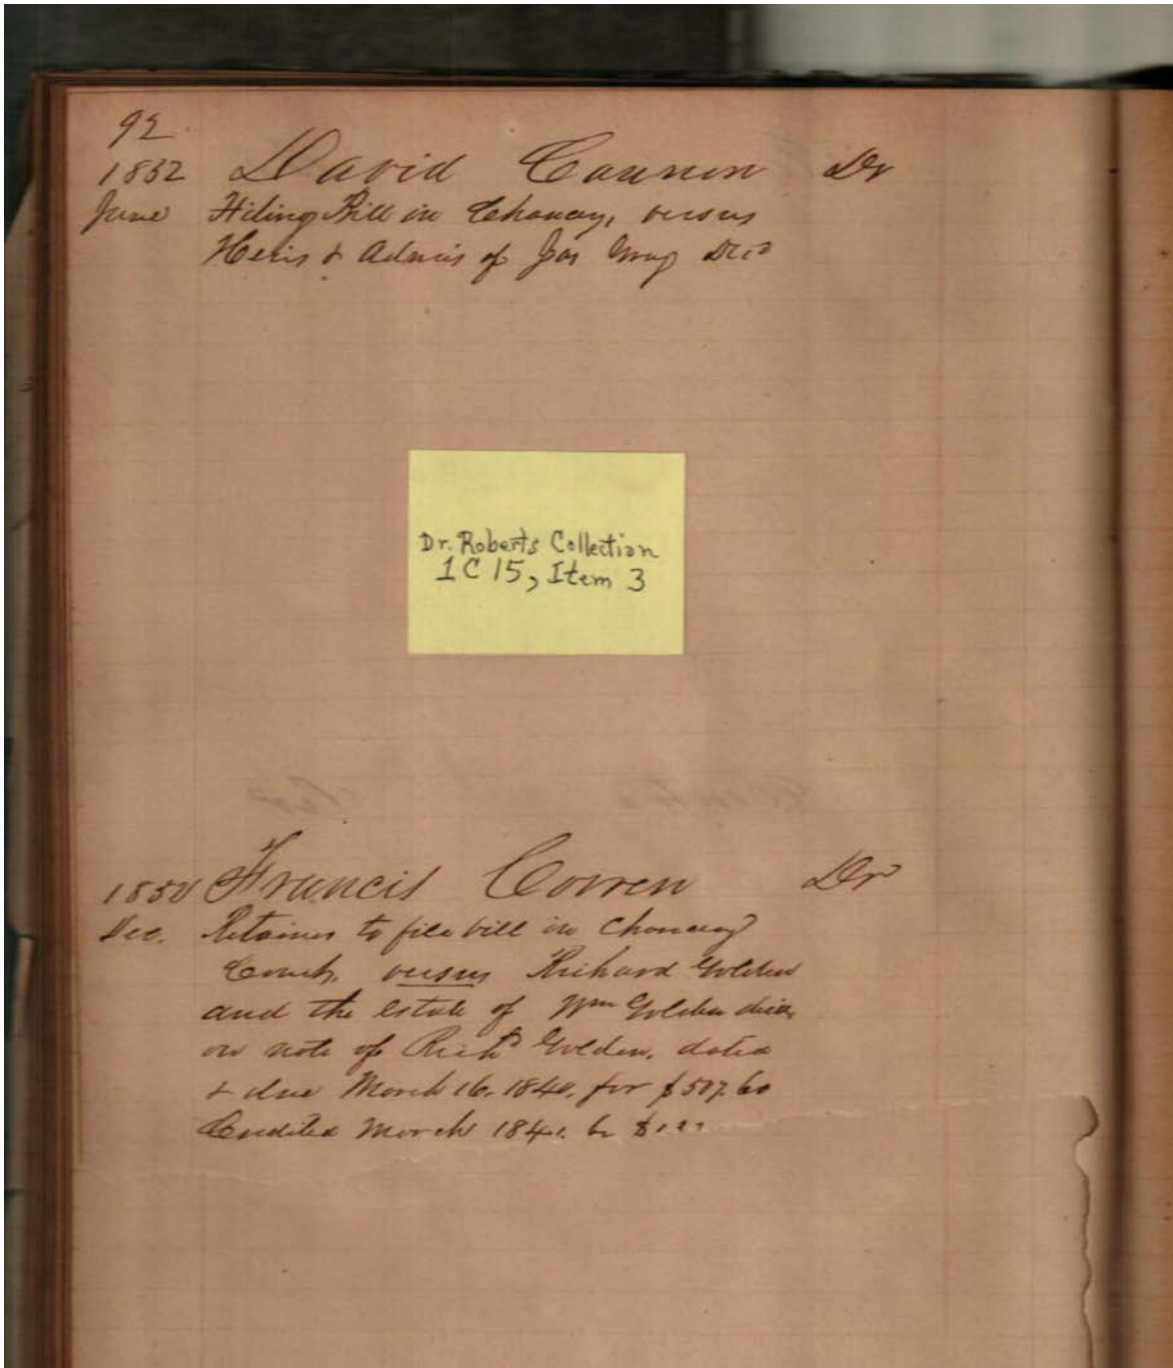 92
1852 David Cannon Dr
June Filing Bill in Chancy, versus
Heirs & Admrs of Jas Gray Decd
Dr. Roberts Collection
1 C 15, Item 3
1850 Francis Cowen Dr
Dec. Retainer to file bill in Chancery
Court, versus Richard Golden
and the Estate of Wm Golden decd,
on note of Richd Golden, dated
& due March 16. 1840. for $507.60
Credited March 184